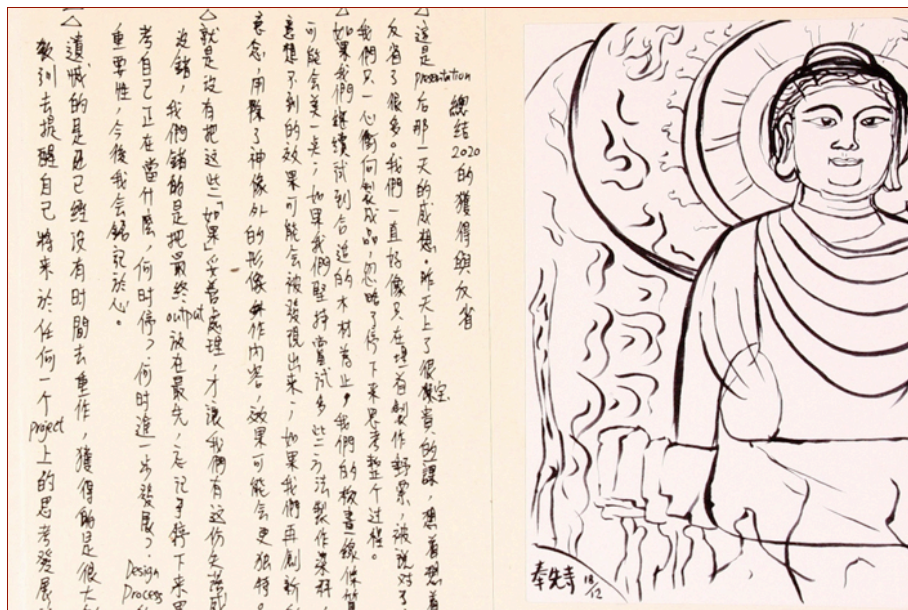 總結2020的獲得與反省
△這是presentation后那一天的感想。昨天上了很寶貴的課,想着想着
反省了很多。我們一直好像只在埋首製作
我們只一心衝向製成品,忽略了停下來思考整个过程。
△如果我們繼續試到合适的木材為止,我們的
可能会美一点;如果我們堅持嘗試多些方法製作
意想不到的效果可能会被發現出來;如果我們再創新
意念,用除了神像外的形像作內容,效果可能会更独特。
△就是沒有把這些「如果」妥善處理,才讓我們有这份失落感
沒錯,我們錯的是把最終output放在最先,忘記了停下來思
考自己正在當什麼,何时停?何时進一步發展?Design Process
重要性,今後我会銘記於心。
△遺憾的是已經沒有时間去重作,獲得的是很大
教訓去提醒自己將來於任何一个project上的思考發展
奉先寺 18/12